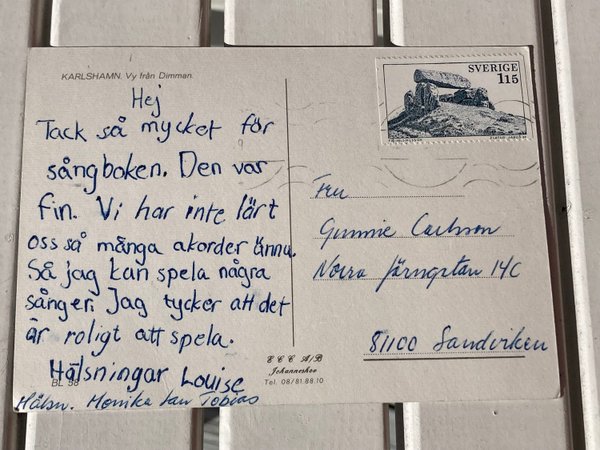 KARLSHAMN. Vy från Dimman.
Hej
Tack så mycket för
sångboken. Den var
fin. Vi har inte lärt
oss så många akorder ännu.
Så jag kan spela några
sånger. Jag tycker att det
är roligt att spela.
Hälsningar Louise
BL 58
Hälsn. Monika Jan Tobias
E C C A/B
Johanneshov
Tel. 08/81.88.10
SVERIGE
115
Fru
Gunnie Carlsson
Norra Järngatan 14C
81100 Sandviken